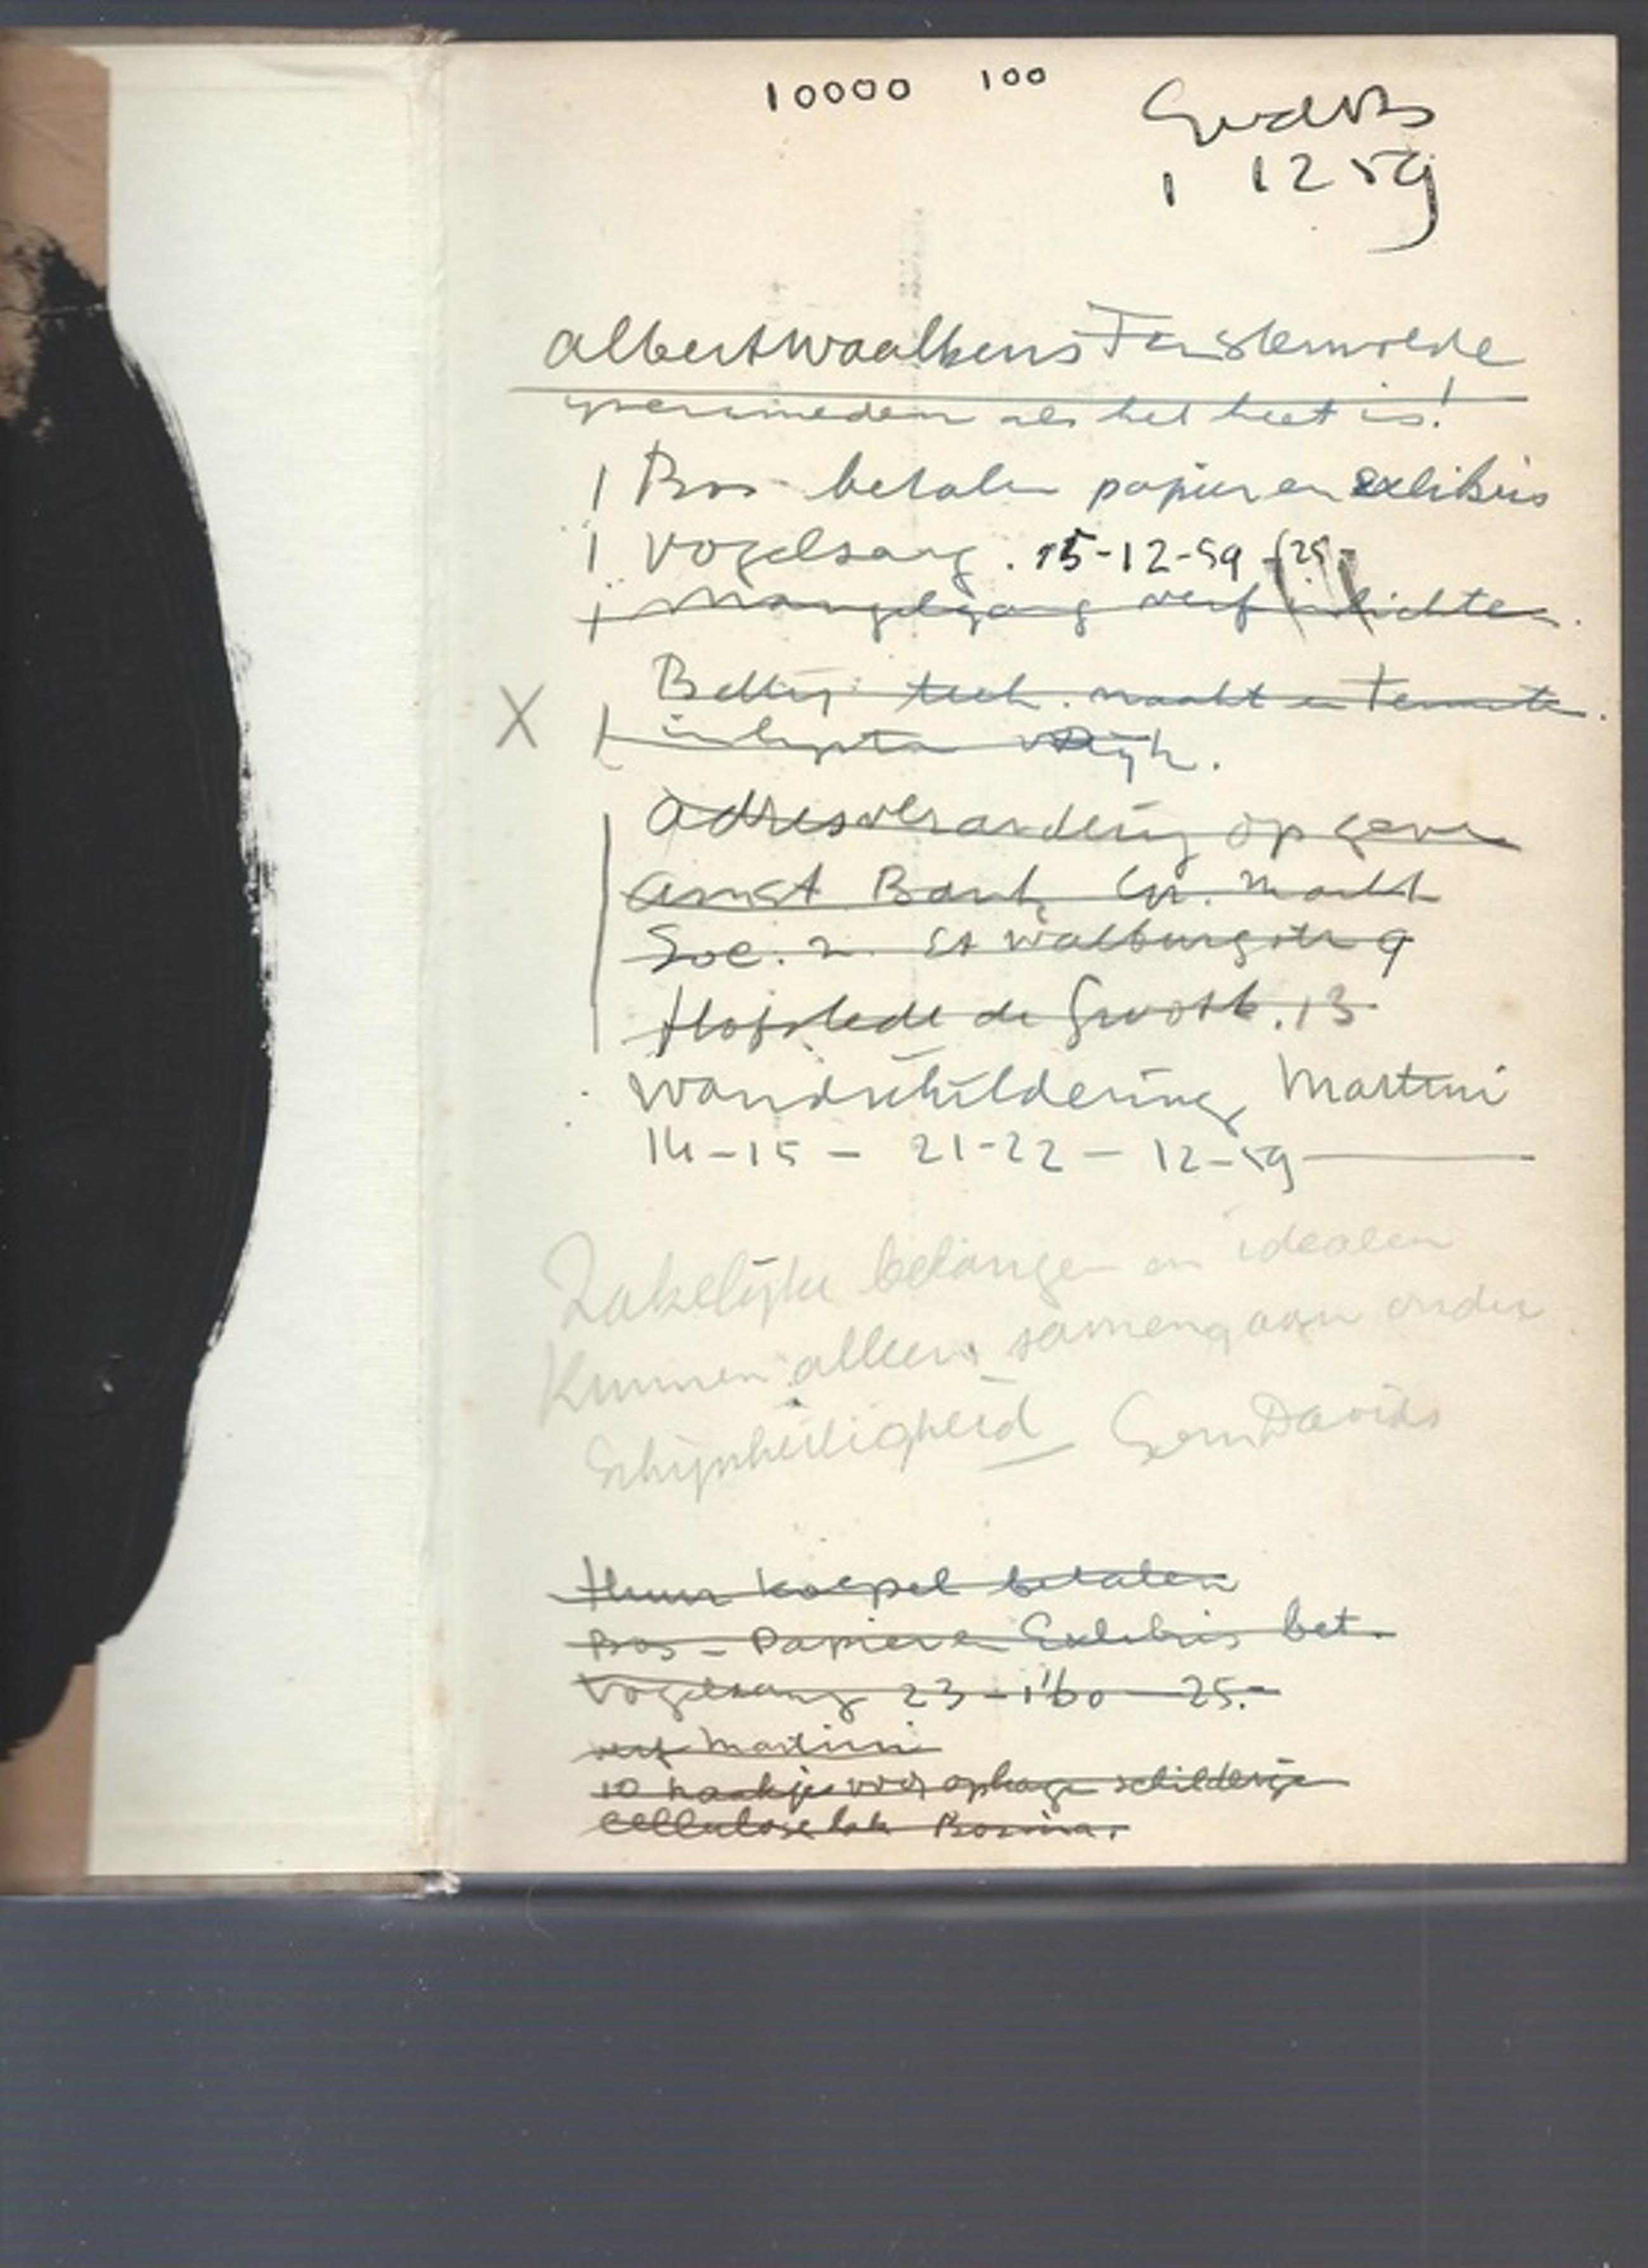 10000 100
1 12 59
albert waalkens Finsterwolde
als het heet is!
Bos betalen papier en exlibris
Vogelsang. 15-12-59 (25,-
verf
X Betty tech. naakt en
adresverandering opgeven
amst Bank Gr. Markt
Soc. St Walburgstr 9
Hofstede de Grootk. 13
wandschildering Martini
14-15 - 21-22 - 12-59
Zakelijke belangen en idealen
kunnen alleen samengaan onder
Schijnheiligheid Gem Davids
Huur koepel betalen
Bos - Papier en Exlibris bet.
Vogelsang 23-1'60 - 25.-
verf Martini
10 haakjes voor ophange schilderije
cellulose lak Bosma.